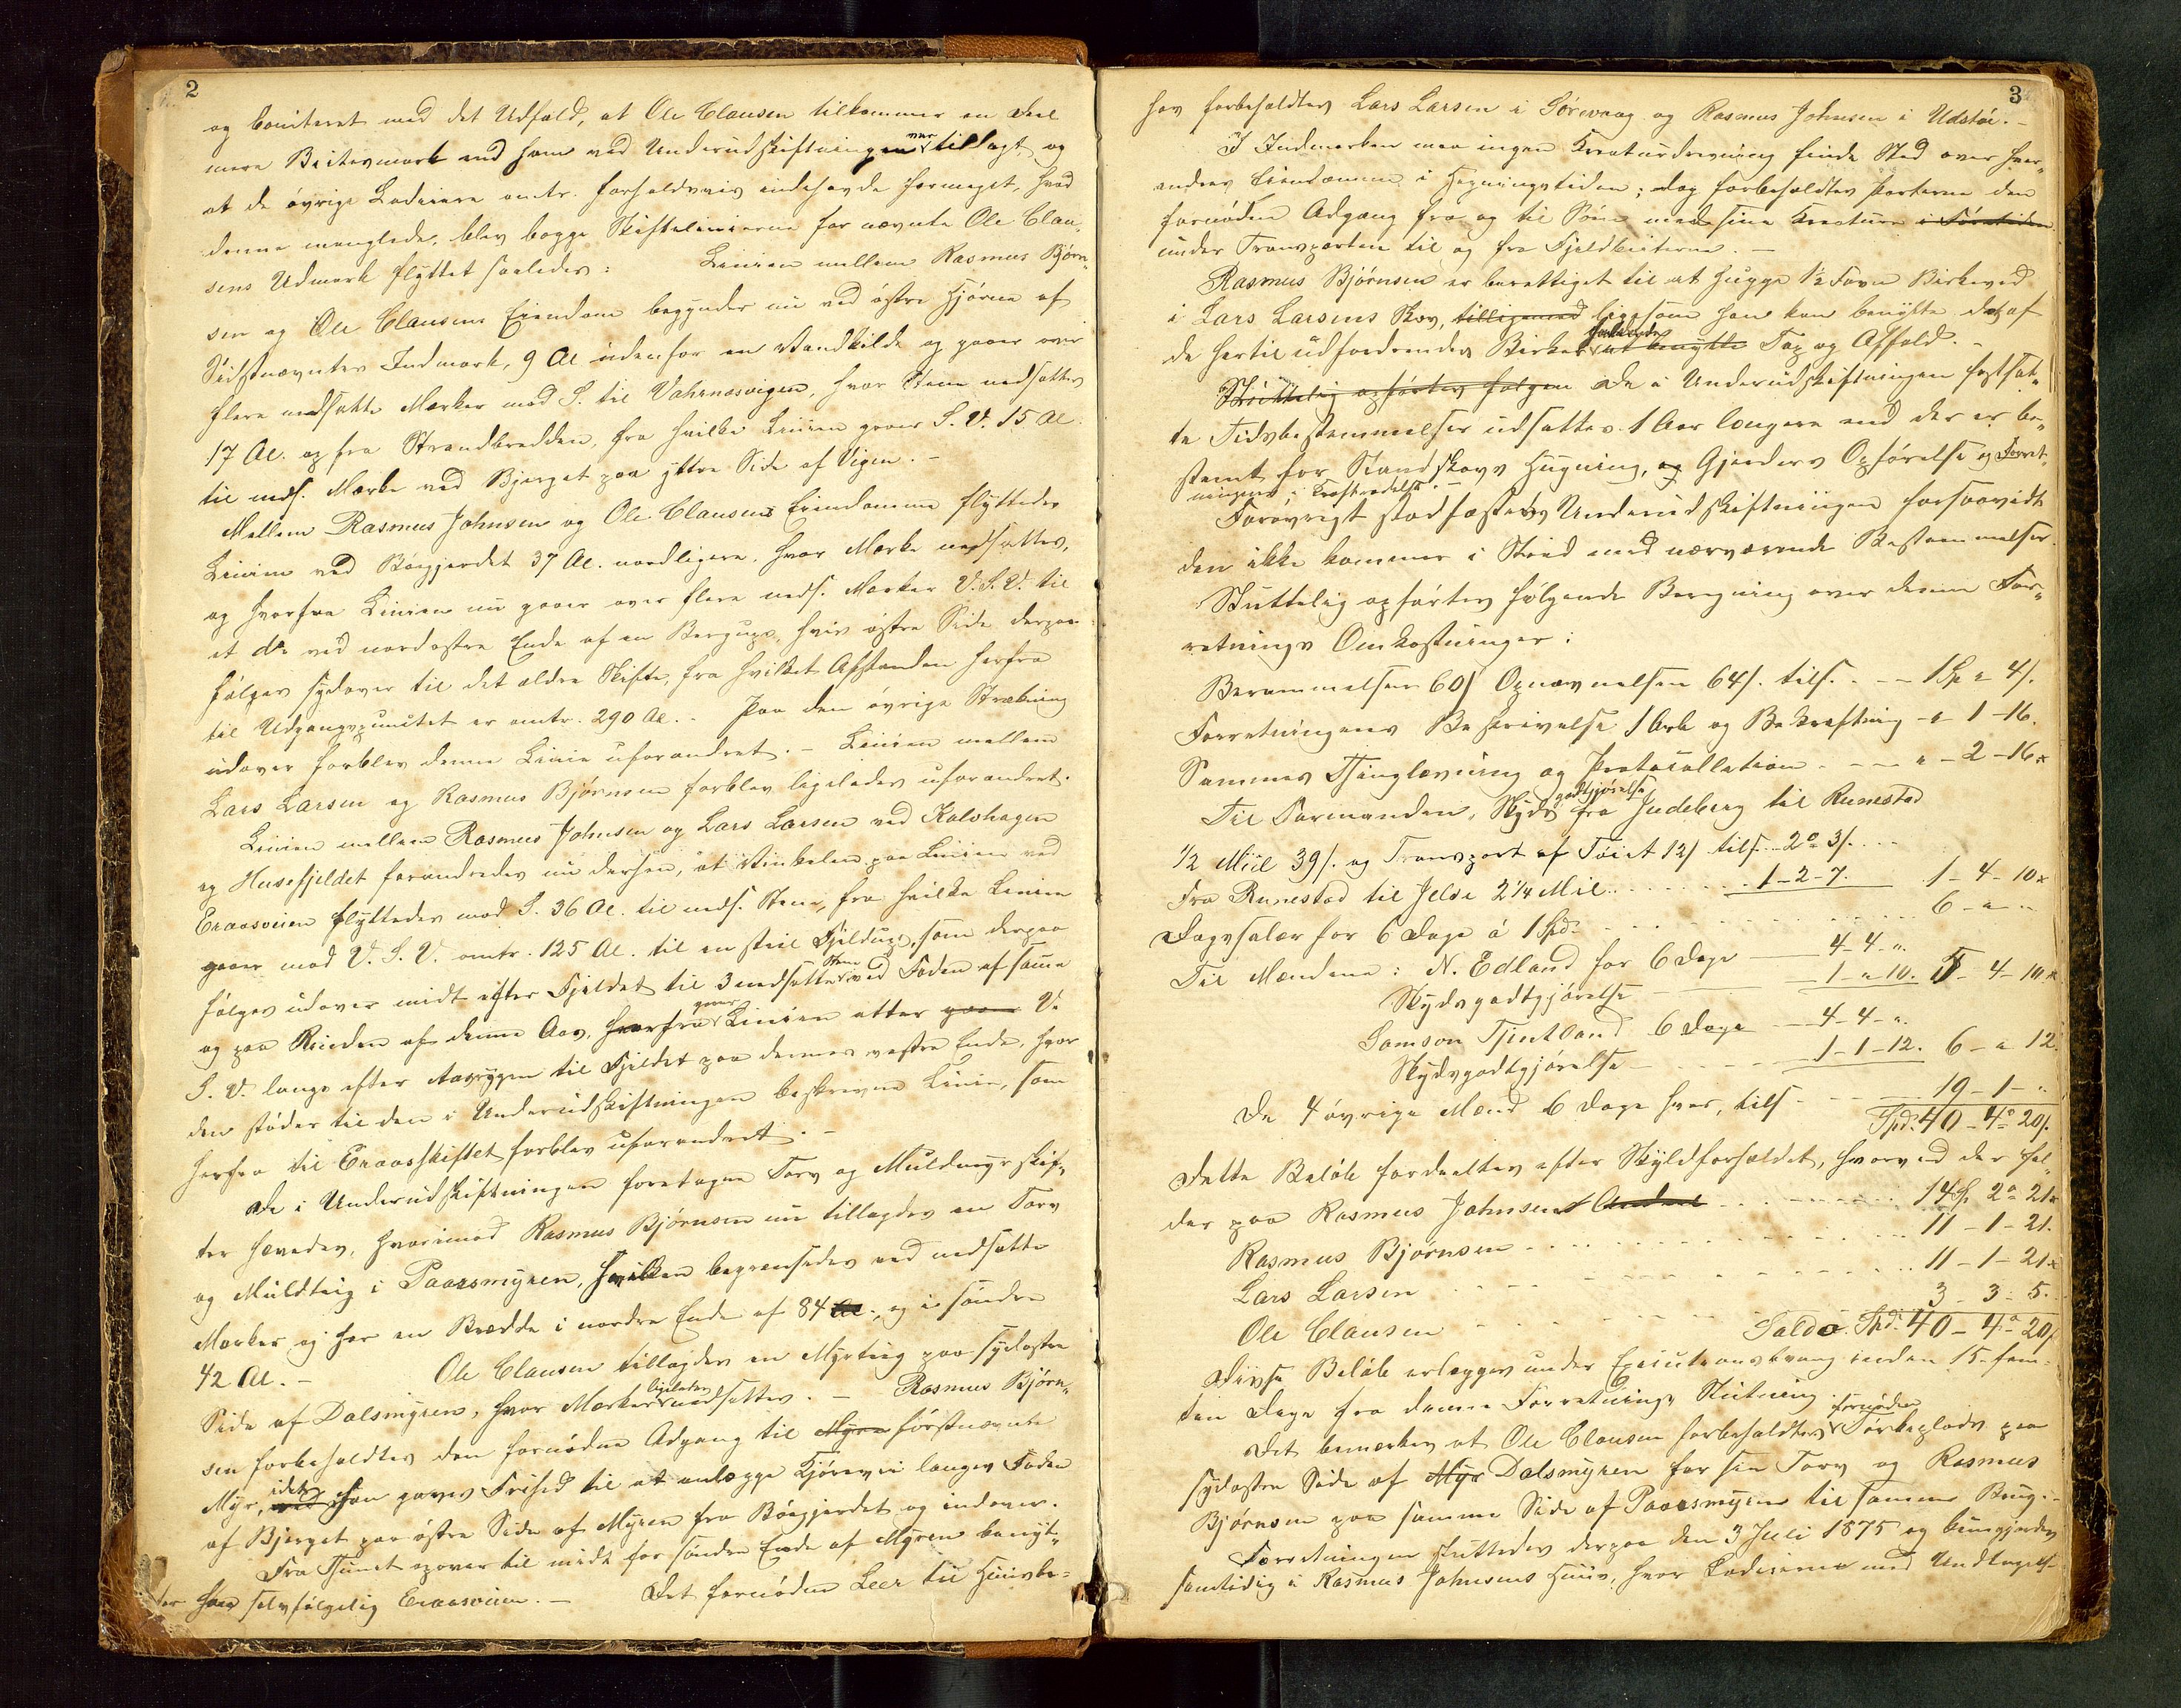 2
og boniteret med det Udfald, at Ole Clausen tilkommer en Deel
mere Beitesmark end ham ved Underudskiftningen var tillagt, og
at de øvrige Lodeiere omtr. forholdsvis indehavde formeget, hvad
denne manglede, blev begge Skiftelinierne for nævnte Ole Clau-
sens Udmark flyttet saaledes: Linien mellem Rasmus Bjørn-
sen og Ole Clausens Eiendom begynder nu ved østre Hjørne af
Sidstnævntes Indmark, 9 Al. udenfor en Vandkilde og gaaer over
flere nedsatte Mærker mod S. til Vahrnæsvigen, hvor Steen nedsattes
17 Al. op fra Strandbredden, fra hvilke Linien gaaer S.V. 15 Al.
til neds. Mærke ved Bjerget paa yttre Side af Vigen. -
Mellem Rasmus Johnsen og Ole Clausens Eiendomme flyttedes
Linien ved Bøgjerdet 37 Al. nordligere, hvor Mærke nedsattes,
og hvorfra Linien nu gaaer over flere neds. Mærker V.S.V. til
et do ved nordøstre Ende af en Bergups, hvis østre Side derpaa
følges sydover til det ældre Skifte, fra hvilket Afstanden herfra
til Udgangspunktet er omtr. 290 Al. - Paa den øvrige Strækning
udover forblev denne Linie uforandret. - Linien mellem
Lars Larsen og Rasmus Bjørnsen forblev ligeledes uforandret.
Linien mellem Rasmus Johnsen og Lars Larsen ved Kalvhagen
og Husefjeldet forandredes nu derhen, at Vinkelen paa Linien ved
Eraasveien flyttedes mod S. 36 Al. til neds. Steen, fra hvilke Linien
gaaer mod V.S.V. omtr. 125 Al. til en steil Fjeldups, som derpaa
følges udover midt efter Fjeldet til 3 nedsatte Stene ved Foden af samme
og paa Rinden af denne Aas, hvorfra gaaer Linien atter gaaer V.
S.V. langs efter Aasryggen til Fjeldet paa dennes vestre Ende, hvor
den støder til den i Underudskiftningen beskrevne Linie, som
herfra til Eraasskiftet forblev uforandret. -
De i Underudskiftningen foretagne Torv og Muldmyrskif-
ter hævedes, hvorimod Rasmus Bjørnsen nu tillagdes en Torv
og Muldteig i Paaasmyren, hvilken begrænsedes ved nedsatte
Mærker og har en Bredde i nordre Ende af 84 Al., og i søndre
42 Al. - Ole Clausen tillagdes en Myrteig paa sydøstre
Side af Dalsmyren, hvor Mærker ligeledes nedsattes. - Rasmus Bjørn-
sen forbeholdtes den fornødne Adgang til Myren førstnævnte
Myr, ved idet han gaves Frihed til at anlægge Kjørevei langs Foden
af Bjerget paa østre Side af Myren fra Bøgjerdet og indover.
Fra Tunet opover til midt for søndre Ende af Myren benyt-
tes han selvfølgelig Eraasveien. - Det fornødne Leer til Huusbe-
3
hov forbeholdtes Lars Larsen i Sørevaag og Rasmus Johnsen i Udstøe. -
I Indmarken maa ingen Kreaturdrevning finde Sted over hver-
andres Eiendomme i Hegningstiden; dog forbeholdtes Parterne den
fornødne Adgang fra og til Søen med sine Kreature i Søretiden
under Transporten til og fra Fjeldbeiterne. -
Rasmus Bjørnsen er berettiget til at hugge 1½ Favn Birkeved
i Lars Larsens Skov, tilligemed ligesom han kan benytte det af
de hertil udfordrende Birker faldende at benytte Top og Affald. -
Sluttelig opførtes følgen De i Underudskiftningen fastsat-
te Tidsbestemmelser udsattes 1 Aar længere end der er be-
stemt for Strandskovs Hugning, og Gjerders Opførelse og Forret-
ningens i Krafttrædelse. -
Forøvrigt stadfæstedes Underudskiftningen forsaavidt
den ikke kommer i Strid med nærværende Bestemmelser.
Sluttelig opførtes følgende Beregning over denne For-
retnings Omkostninger:
Berammelsen 60/ Opnævnelsen 64/. tils. - - 1 Sp " 4/.
Forretningens Beskrivelse 1 Ark og Bekræftning - " 1 - 16.
Sammes Thinglæsning og Protocollation - - - " - 2 - 16x
Til Formanden, Skyds godtgjørelse fra Judeberg til Runestad
1/2 Miil 39/. og Transport af Tøiet 12/ tils. 2o 3/. . . .
Fra Runestad til Jelse 2 1/4 Mil . . . . . 1 - 2 - 7. 1 - 4 - 10x
Dagsalær for 6 Dage á 1 Spd. . . . . . . 6 - " - "
Til Mændene: N. Edland for 6 Dage — 4 - 4 - ".
Skydsgodtgjørelse — 1 - " 10. 5 - 4 - 10x
Samson Tjentland 6 Dage — 4 - 4 - ".
Skydsgodtgjørelse — 1 - 1 - 12. 6 - " 12.
De 4 øvrige Mænd 6 Dage hver, tils - - 19 - 1 - "
Spd. 40 - 4o 20/.
Dette Beløb fordeeltes efter Skyldforholdet, hvorved der fal-
der paa Rasmus Johnsen . . . . . . 14 Sp 2o 21x
Rasmus Bjørnsen . . . . . . 11 - 1 - 21.
Lars Larsen . . . . . . 11 - 1 - 21x
Ole Clausen . . . . . . 3 - 3 - 5.
Saldo. Spd. 40 - 4o 20/.
Disse Beløb erlægges under Executionstvang inden 15 fem-
ten Dage fra denne Forretnings Slutning.
Det bemærkes at Ole Clausen forbeholdtes fornøden Tørkeplads paa
sydøstre Side af Myr Dalsmyren for sin Torv og Rasmus
Bjørnsen paa samme Side af Paaasmyren til samme Brug. -
Forretningen sluttedes derpaa den 3 Juli 1875 og kungjordes
samtidig i Rasmus Johnsens Huus, hvor Lodeierne med Undtagelse